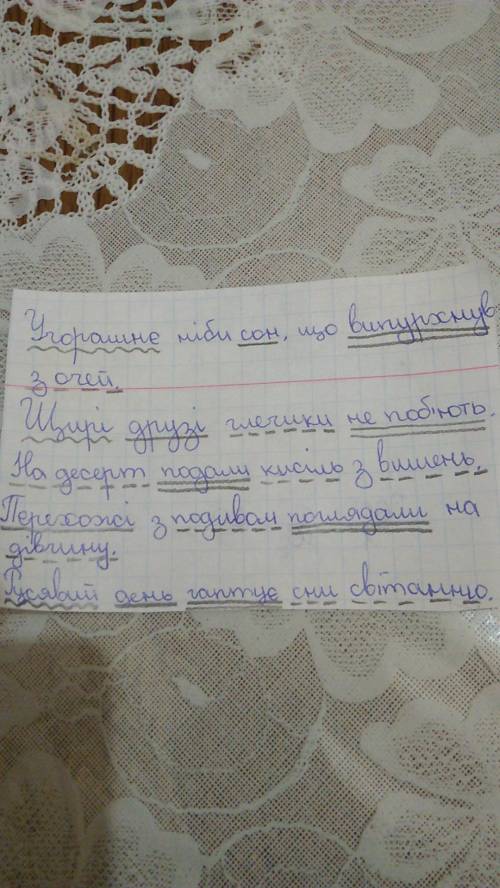 Угорашнє ніби сон, що випурхнув
з очей.
Щирі друзі глечики не поб'ють.
На десерт подали кисіль з вишень.
Перехожі з подивом поглядали на
дівчину.
Русявий день гаптує сни світанню.